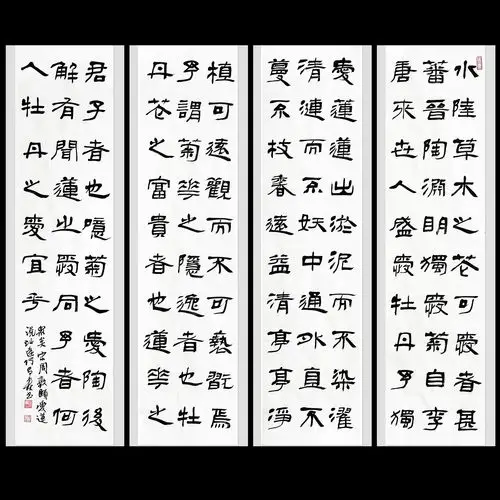 水陸草木之花可愛者甚
蕃晉陶淵明獨愛菊自李
唐來世人盛愛牡丹予獨
愛蓮蓮出淤泥而不染濯
清漣而不妖中通外直不
蔓不枝香遠益清亭亭淨
植可遠觀而不可褻翫焉
予謂菊華之隱逸者也牡
丹花之富貴者也蓮華之
君子者也噫菊之愛陶後
鮮有聞蓮之愛同予者何
人牡丹之愛宜乎
周敦頤愛蓮
說